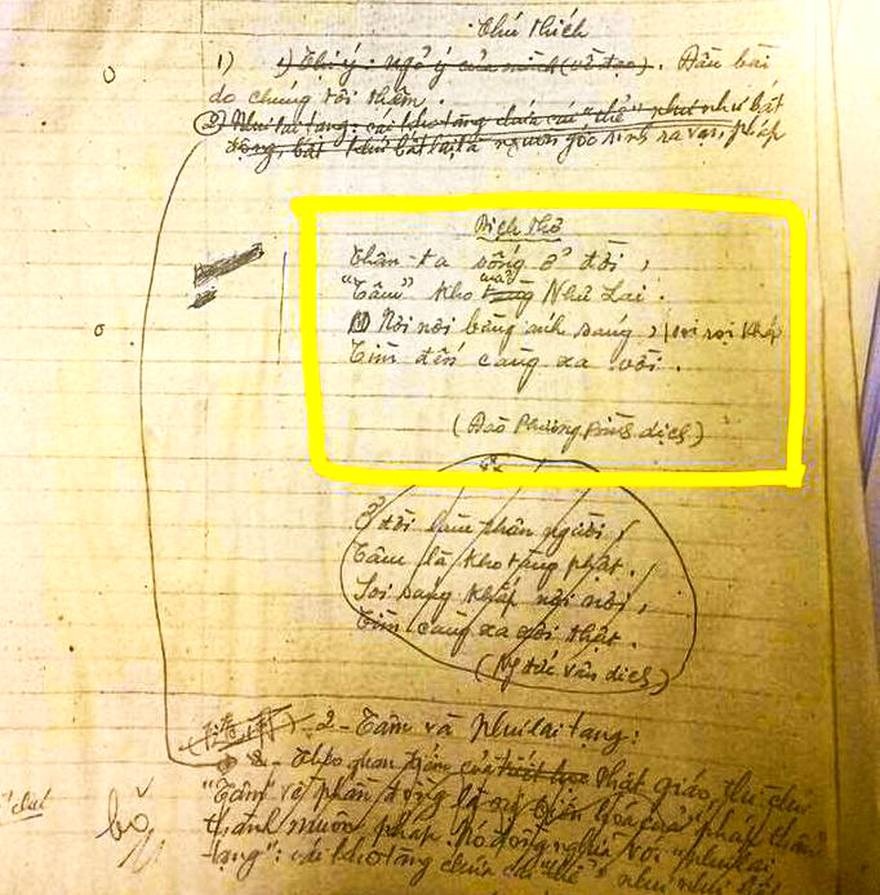 Chú thích
1) 1) Thị ý: ngỏ ý của mình (về đạo). Đầu bài
do chúng tôi thêm.
2) Như lai tạng: cái kho tàng chứa cái "thể" như như bất
động, bất
nguồn gốc sinh ra vạn pháp
Dịch thơ
Thân ta sống ở đời,
"Tâm" kho Như Lai.
Nơi nơi bằng ánh sáng, soi rọi khắp
Tìm đến càng xa vời.
(Đào Phương Bình dịch)
Ở đời làm thân người,
Tâm là kho tàng phật.
Soi sáng khắp nơi nơi,
Tìm càng xa vời thật.
(Ng Đức Vân dịch)
2 - Tâm và Như lai tạng:
Theo quan của Phật giáo, thì chữ
"Tâm" về phần động là sự biến hóa của "pháp thân"
thành muôn pháp. Nó đồng nghĩa với "như lai
tạng": cái kho tàng chứa cái "thể" như như
bỏ